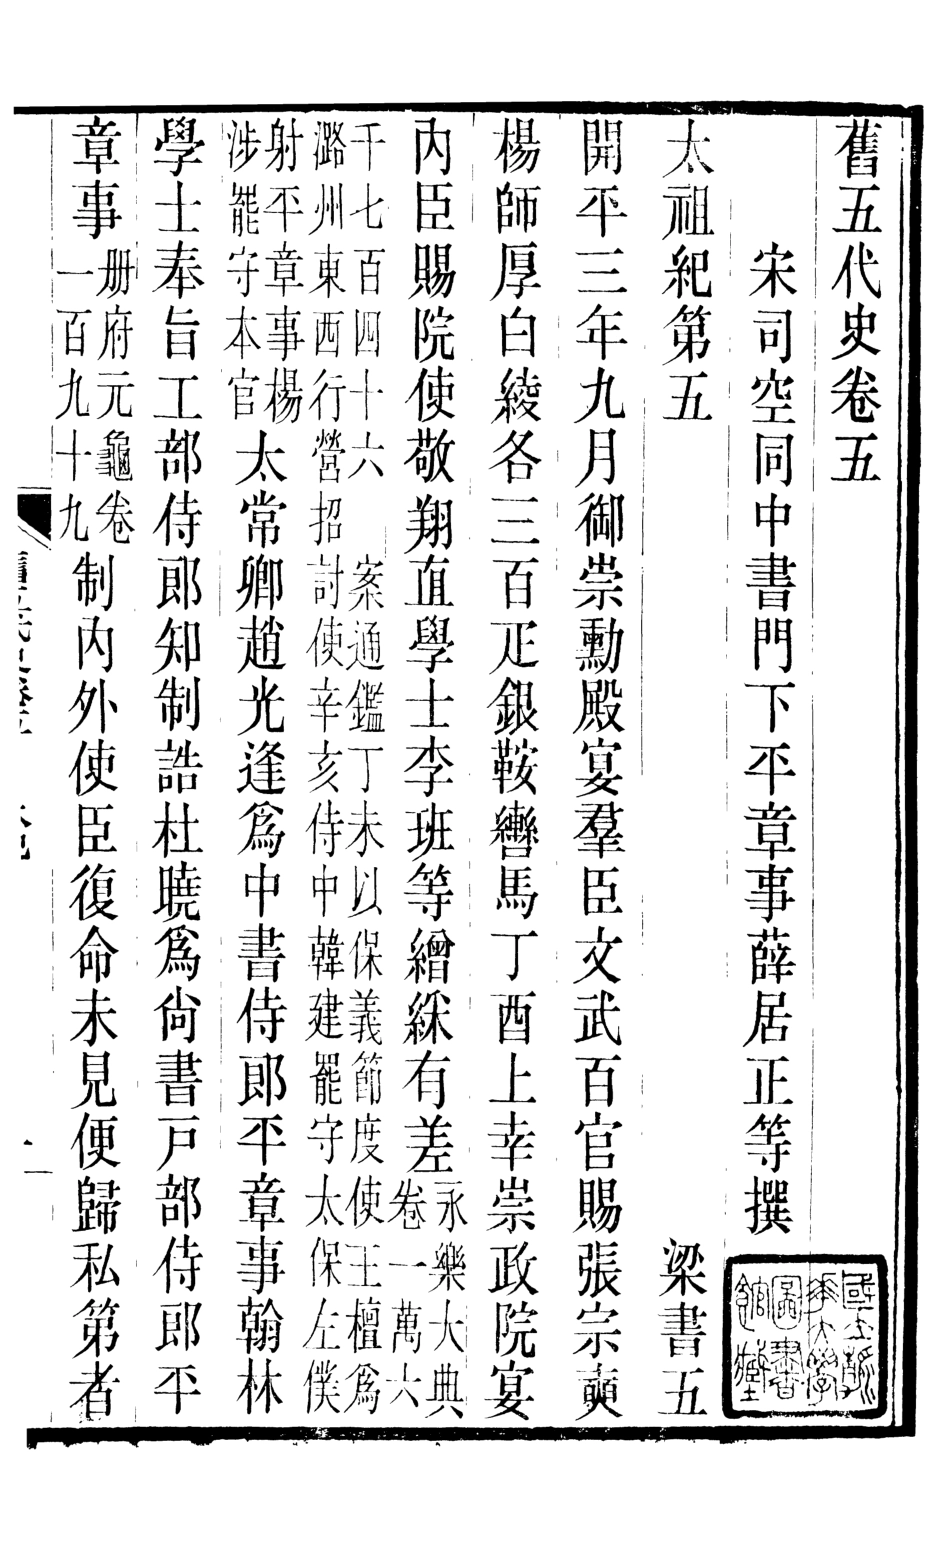 舊五代史卷五
宋司空同中書門下平章事薛居正等撰
太祖紀第五　梁書五
開平三年九月御崇勳殿宴羣臣文武百官賜張宗奭
楊師厚白綾各三百疋銀鞍轡馬丁酉上幸崇政院宴
內臣賜院使敬翔直學士李班等繒綵有差永樂大典卷一萬六
千七百四十六　案通鑑丁未以保義節度使王檀爲
潞州東西行營招討使辛亥侍中韓建罷守太保左僕
射平章事楊涉罷守本官太常卿趙光逢爲中書侍郎平章事翰林
學士奉旨工部侍郎知制誥杜曉爲尙書戸部侍郎平
章事册府元龜卷一百九十九制內外使臣復命未見便歸私第者